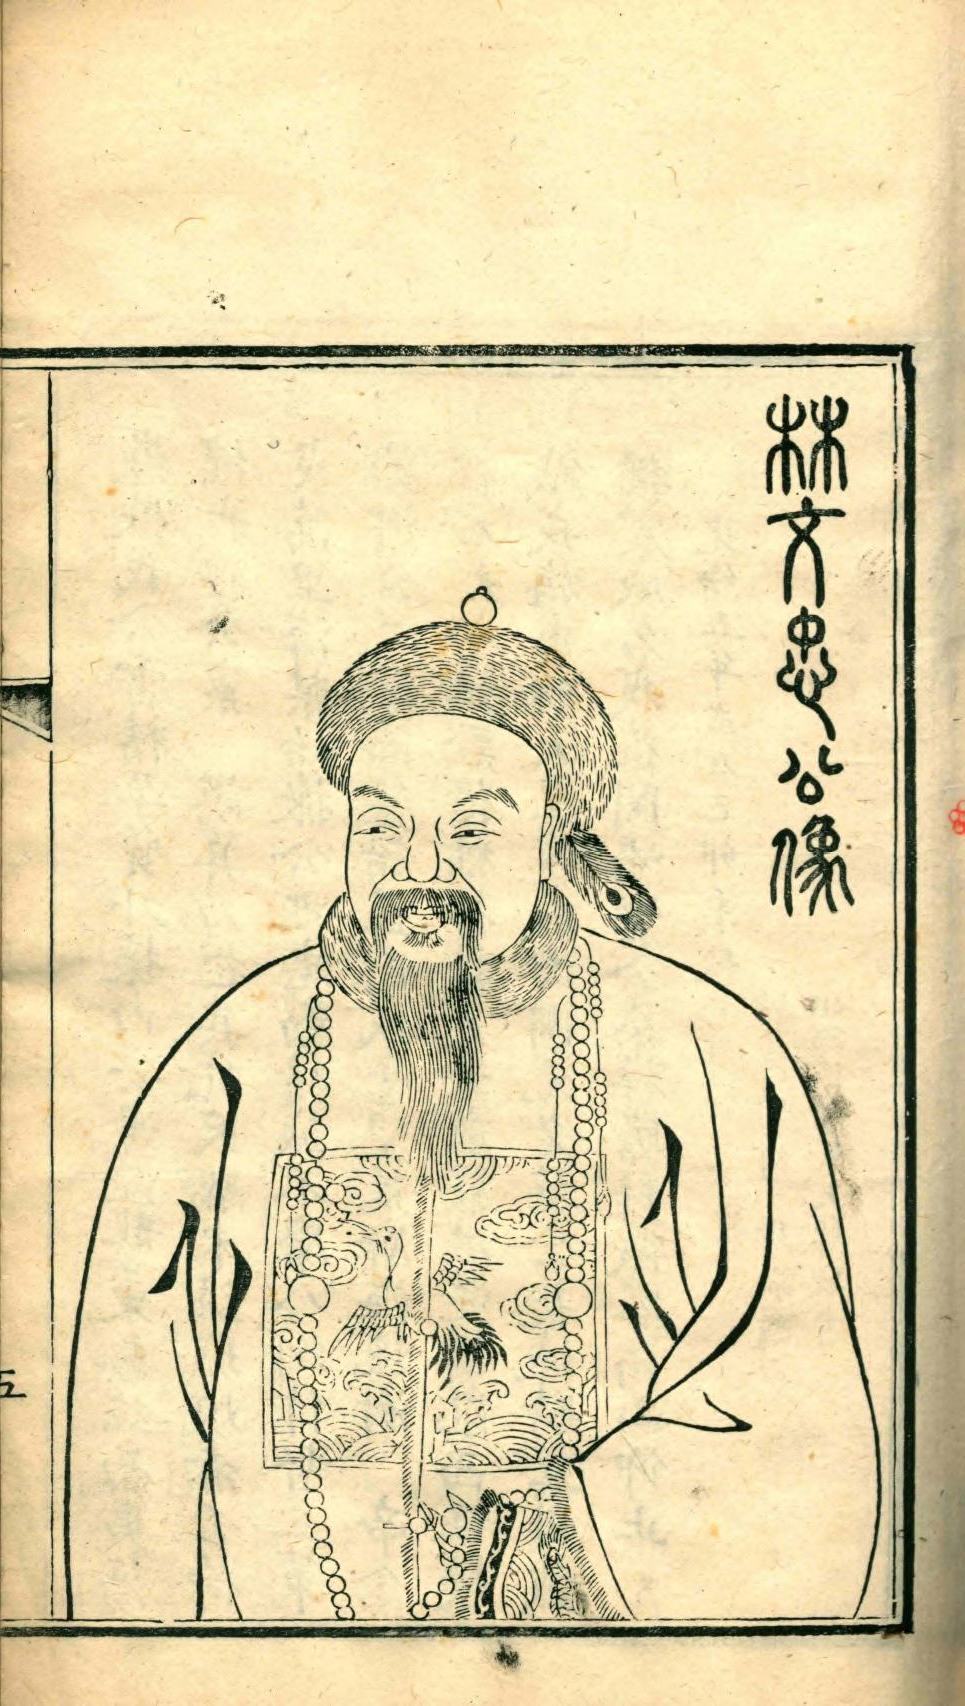 林文忠公像
五